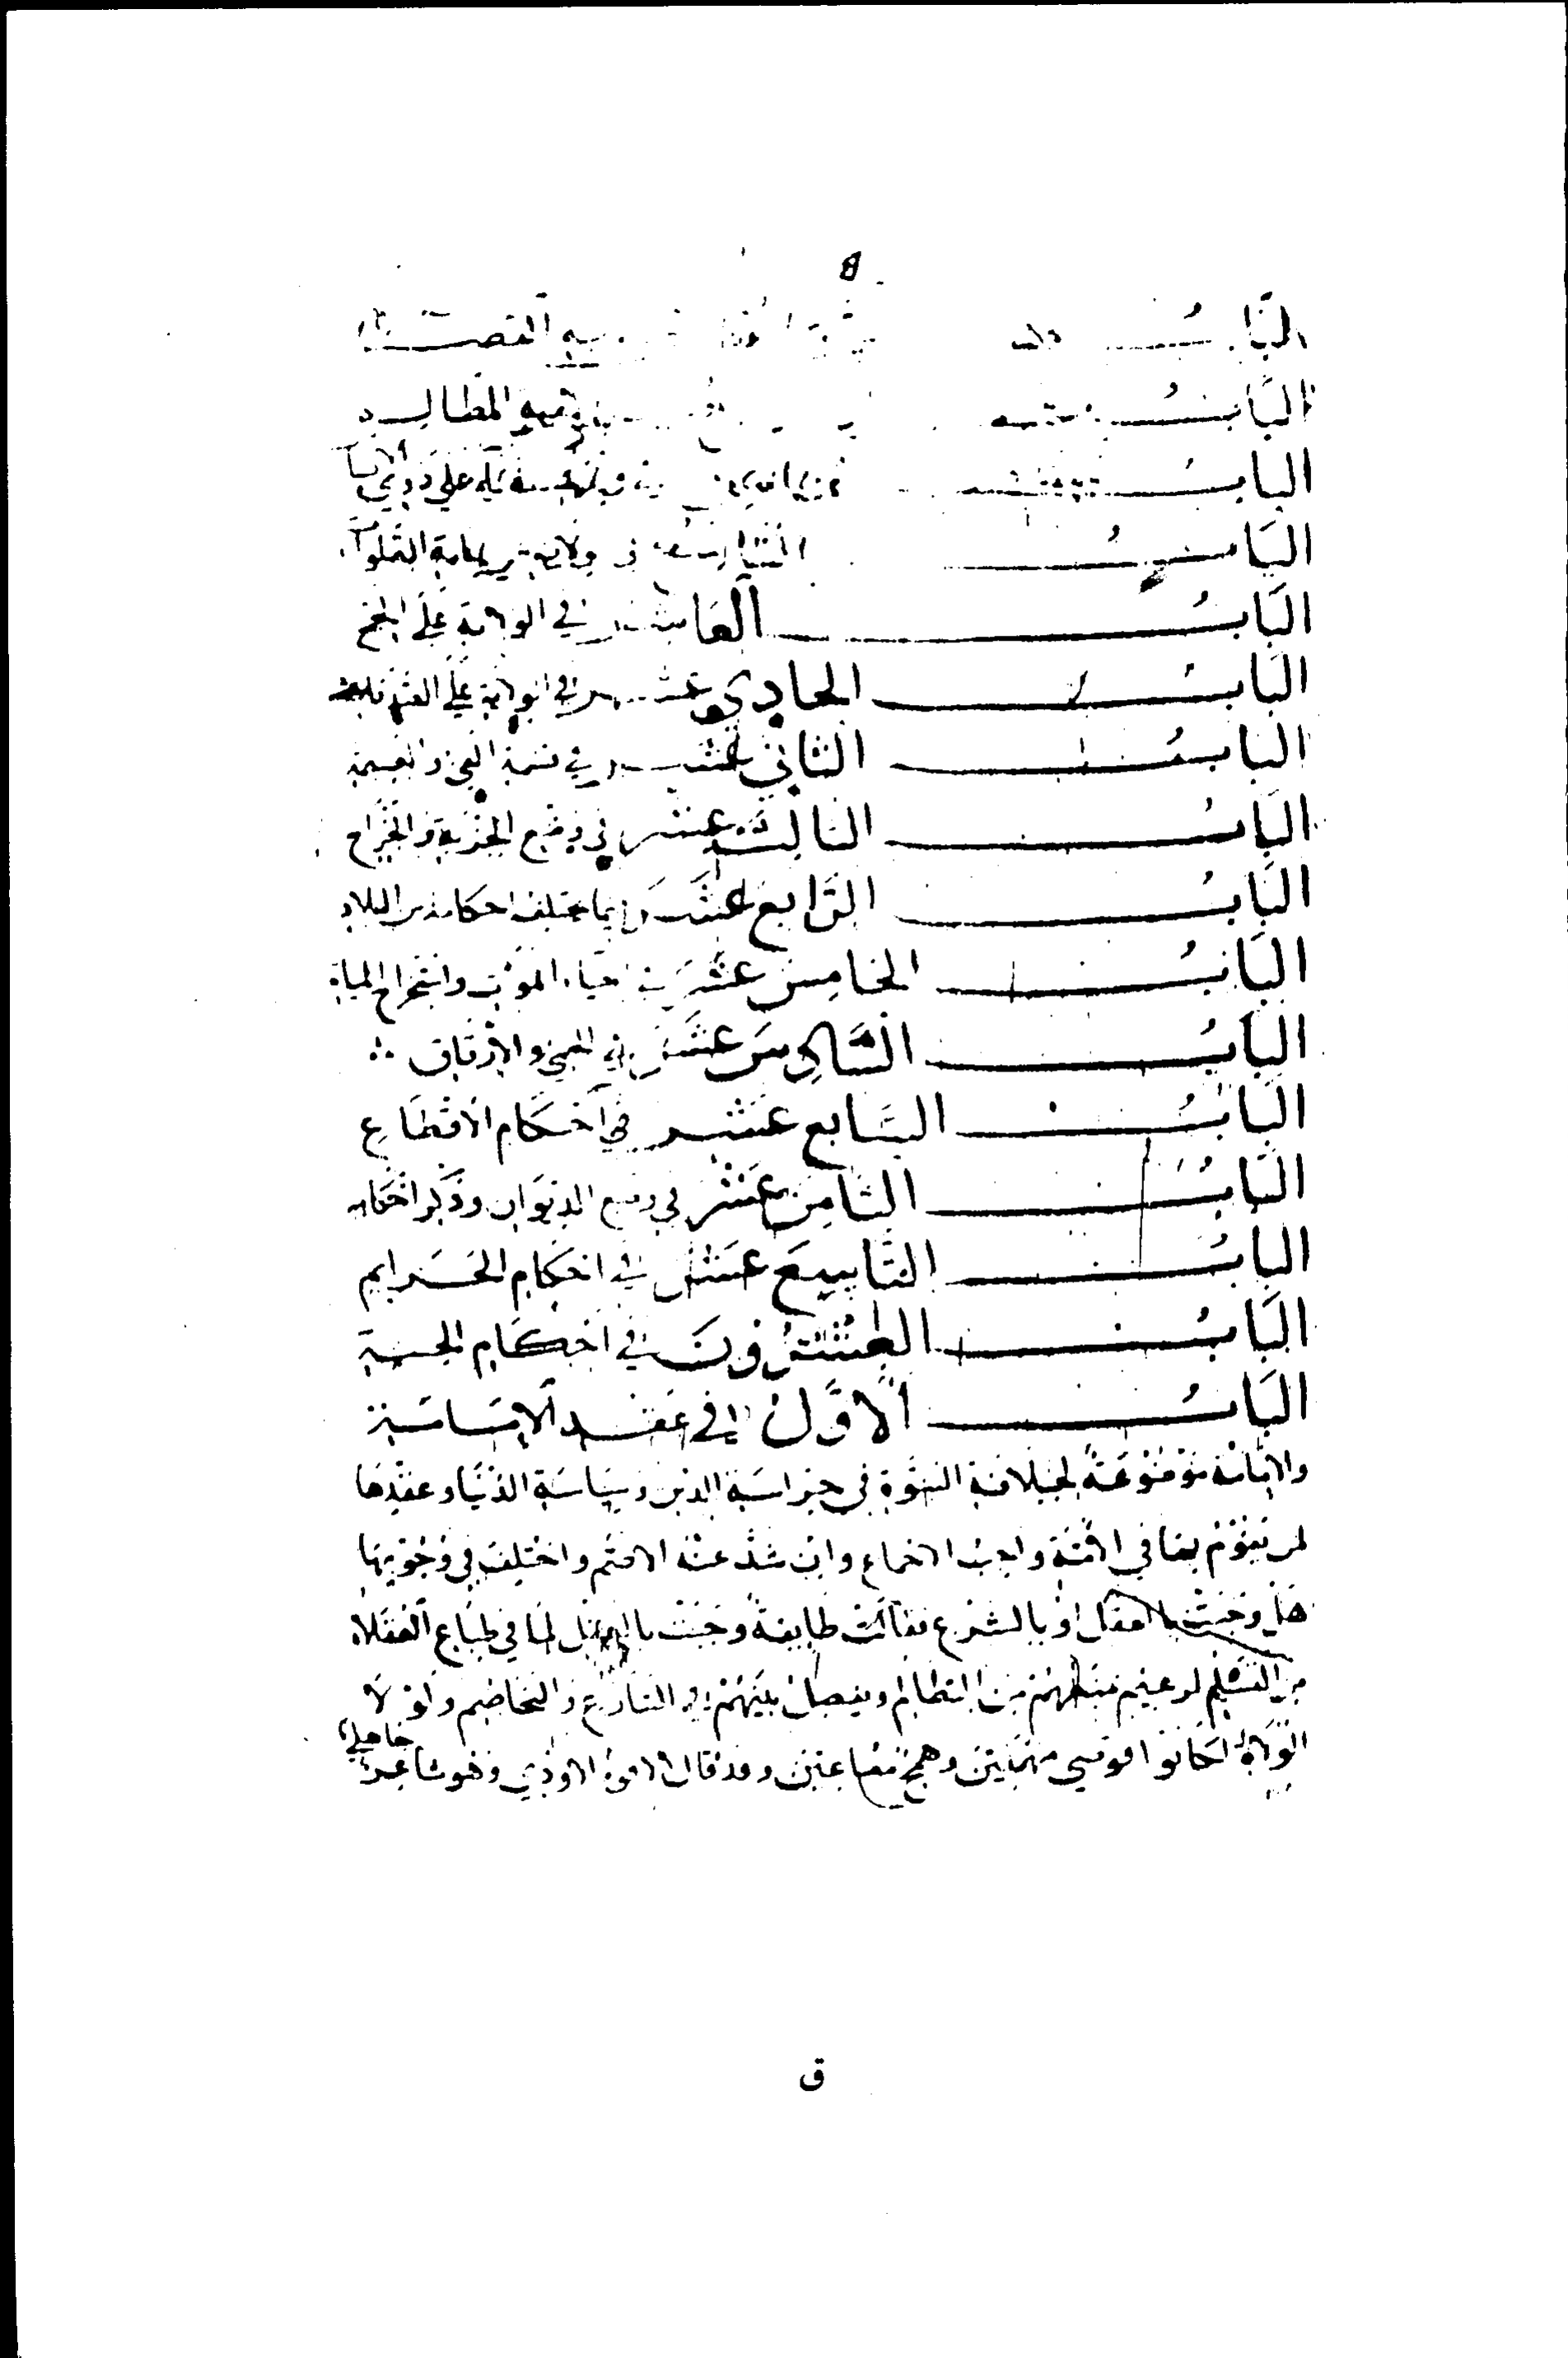 الباب القضا
الباب المظالم
الباب على ذوي الانسا
الباب التاسع في ولاية امامة الصلوا
البَابُ العاشر في الولاية عَلَى الحج
البَابُ الحادي عشر في الولاية عَلَى الصدقات
البابُ الثاني عشر في قسمة الفي والغنيمة
البَابُ الثالث عشر في وضع الجزية والخراج
البَابُ الرَّابع عشَر فيما تختلف احكامه من البلاد
البَابُ الخامِس عشَر في احياء المَوَات واستخراج المياه
البَابُ السَّادِس عشَر في الحمى والارفاق
البَابُ السَّابع عشر في أحْكَام الاقطَاع
البَابُ الثَّامِن عَشر في وضع الديوَان وذكر احْكَامه
البابُ التَّاسِع عشر في احكام الجَرايم
البَابُ العِشرُونَ في احْكَام الحسبة
البَابُ الأوَّل في عَقد الامَامَة
والامَامَة مَوْضُوعَةٌ لخِلافَة النبُوَّة في حِرَاسَة الدين وسِيَاسَة الدُّنْيَا وعقْدُهَا
لمن يقوْمُ بهَا في الأمَّة واجبٌ بالاجماع وان شذَّ عنْهُ الاصَم واختلف في وُجُوْبهَا
هَل وجبَتْ بالعقل اوْ بالشرْع فقالَتْ طايفةٌ وجَبَتْ بالعقل لمَا في طبَاع العُقَلاء
من التسْليم لزعيم يمنَعُهُمْ من التظالم ويفصِل بيْنَهُمْ في التنَازُع والتخاصُم ولوْ لاَ
الوُلاةُ لكَانوا فوضى مهمَلينَ وهمجًا مضاعينَ وقد قال الافوه الاودي وهو شاعرٌ جَاهلي
ق